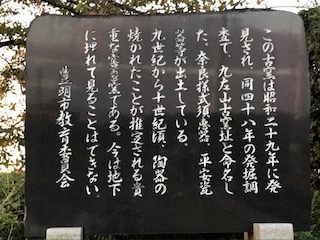 この古窯は昭和二十九年に発
見され、同四十八年の発掘調
査で、九左山古窯址と命名し
た。奈良様式須恵器、平安瓷
器等が出土している。
九世紀から十世紀頃、陶器の
焼かれたことが推察される貴
重な窯である。今は地下
に埋れて見ることはできない。
豊明市教育委員会